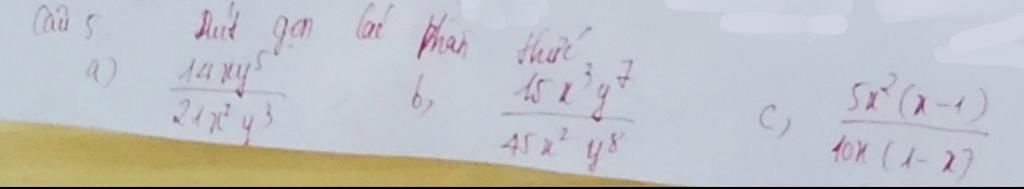 Câu 5. Rút gọn các phân thức
a) \frac{14xy^5}{21x^2y^3} b, \frac{15x^3y^7}{45x^2y^8} c, \frac{5x^2(x-1)}{10x(1-x)}